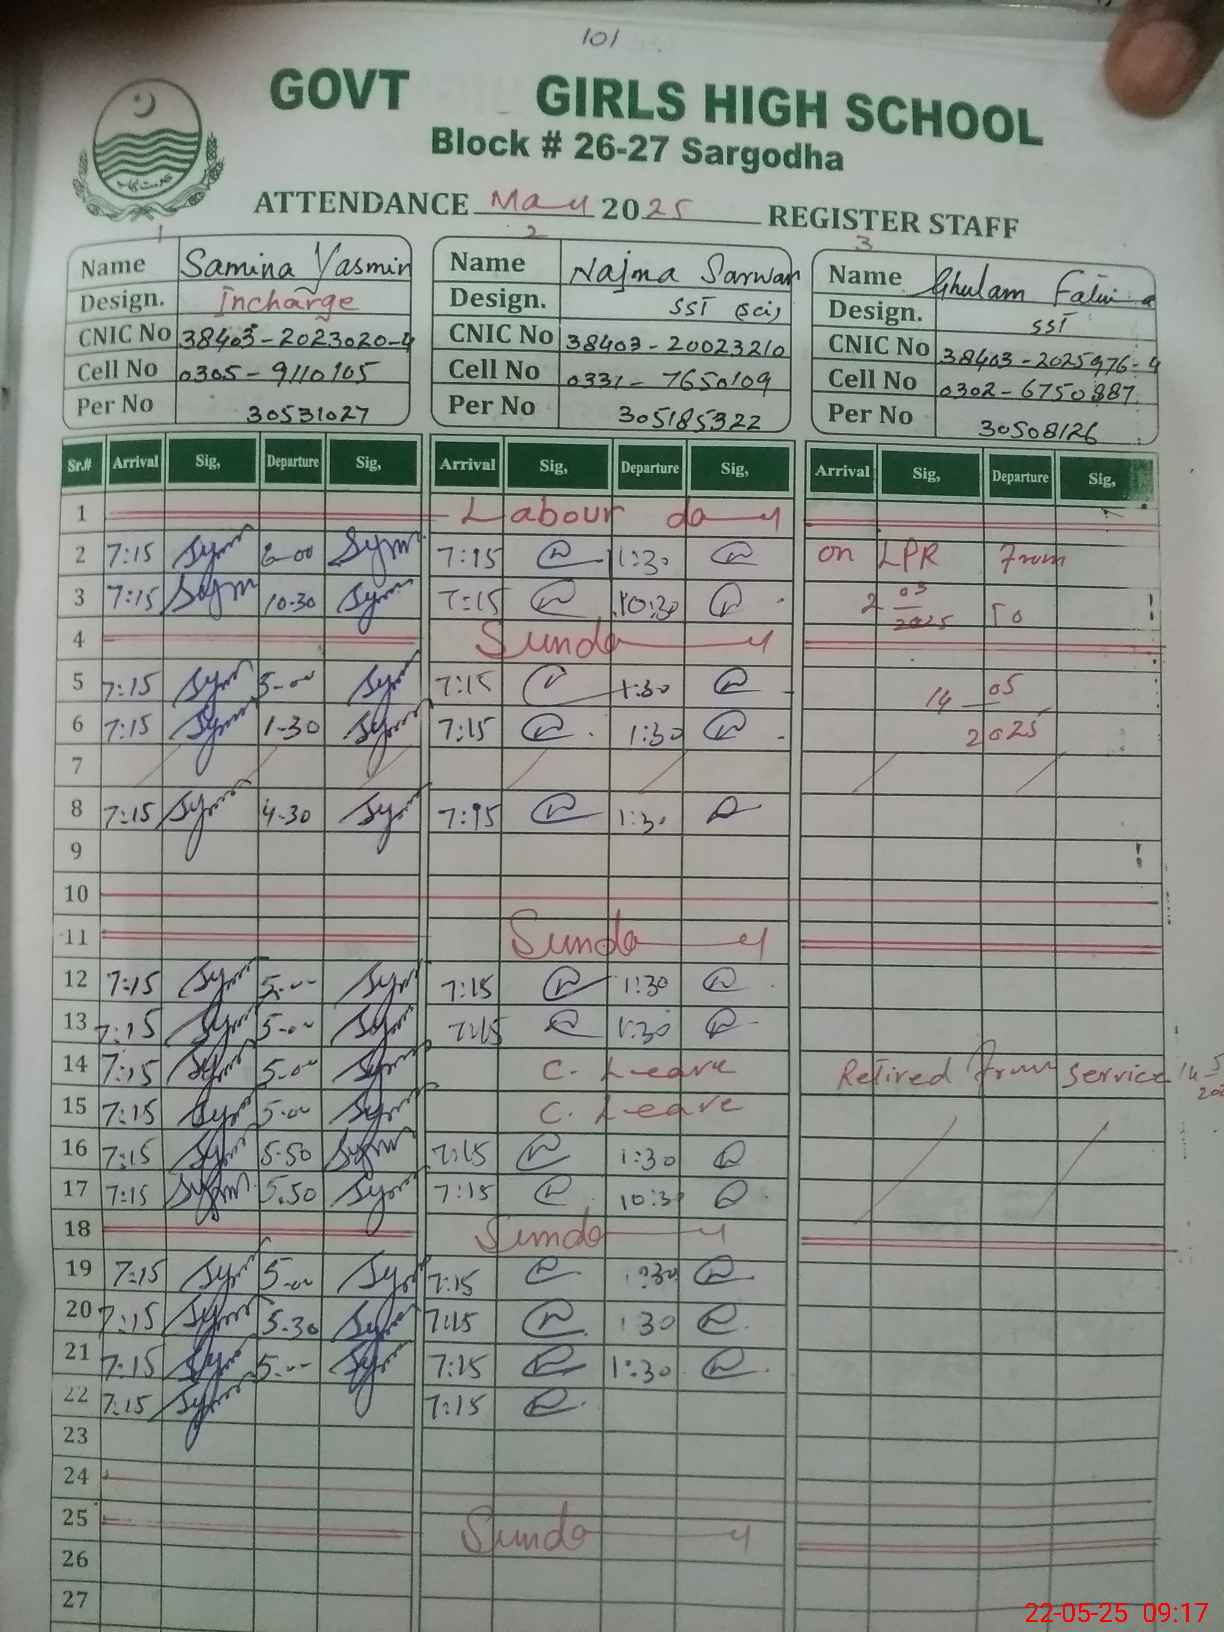 101
GOVT GIRLS HIGH SCHOOL
Block # 26-27 Sargodha
ATTENDANCE May 2025 REGISTER STAFF
1 2 3
Name Samina Yasmin Name Najma Sarwar Name Ghulam Fatima
Design. Incharge Design. SST (Sci) Design. SST
CNIC No 38403-2023020-4 CNIC No 38403-20023210 CNIC No 38403-2025976-4
Cell No 0305-9110105 Cell No 0331-7650109 Cell No 0302-6750887
Per No 30531027 Per No 305185322 Per No 30508126
Sr.# Arrival Sig, Departure Sig, Arrival Sig, Departure Sig, Arrival Sig, Departure Sig,
1 Labour day
2 7:15 6-00 7:15 1:30 on LPR From
3 7:15 10-30 7:15 10:30 2 03 2025 To
4 Sunday
5 7:15 5-00 7:15 1:30 14 05
6 7:15 1-30 7:15 1:30 2025
7
8 7:15 4-30 7:15 1:30
9
10
11 Sunday
12 7:15 5-00 7:15 1:30
13 7:15 5-00 7:15 1:30
14 7:15 5-00 C. Leave Retired From Service 14 5
15 7:15 5-00 C. Leave
16 7:15 5-50 7:15 1:30
17 7:15 5.50 7:15 10:30
18 Sunday
19 7:15 5-00 7:15 1:30
20 7:15 5-30 7:15 1 30
21 7:15 5-00 7:15 1:30
22 7:15 7:15
23
24
25 Sunday
26
27
22-05-25 09:17